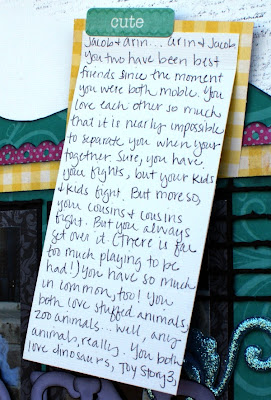 cute
Jacob & arin... arin & Jacob
you two have been best
friends since the moment
you were both moble. You
love each other so much
that it is nearly impossible
to separate you when your
together. Sure, you have
your fights, but your kids
& kids fight. But moreso,
your cousins & cousins
fight. But you always
get over it. (There is far
too much playing to be
had!) You have so much
in common, too! You
both love stuffed animals,
zoo animals... well, any
animals, really. You both
love dinosaurs, Toy Story 3,